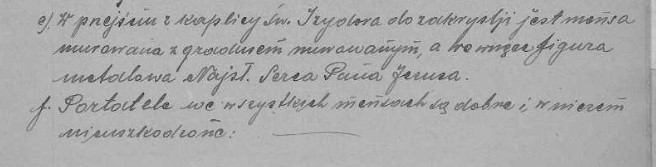 e) W przejściu z kaplicy św. Izydora do zakrystji jest mensa
murowana z gradusem murowanym, a we wnęce figura
metalowa Najsł. Serca Pana Jezusa.
f. Portatele we wszystkich mensach są dobre i w niczem
nieuszkodzone: